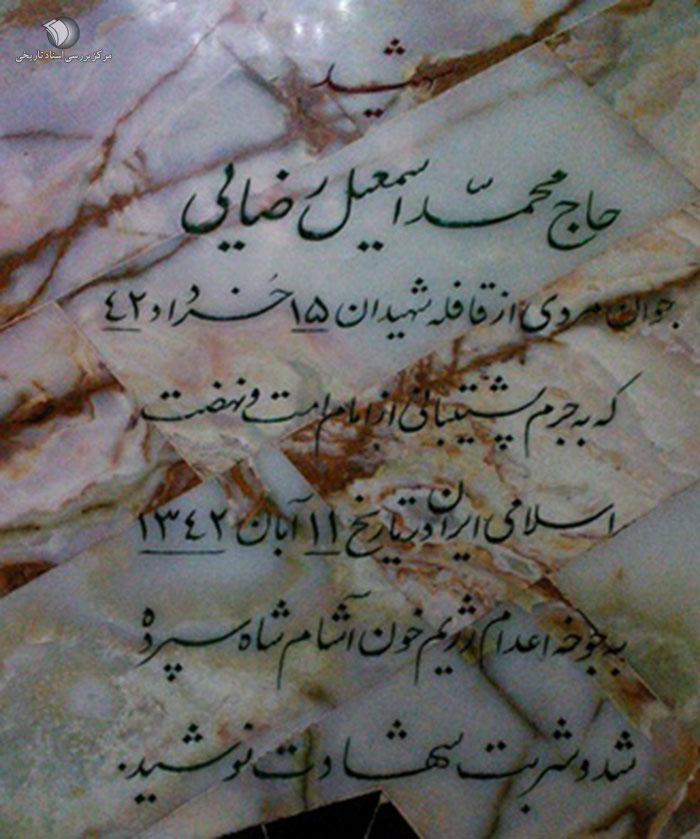 مرکز بررسی اسناد تاریخی
شهید
حاج محمّد اسمعیل رضایی
جوان مردی از قافله شهیدان ۱۵ خُرداد ۴۲
که به جرم پشتیبانی از امام امت و نهضت
اسلامی ایران در تاریخ ۱۱ آبان ۱۳۴۲
به جوخه اعدام رژیم خون آشام شاه سپرده
شد و شربت شهادت نوشید.